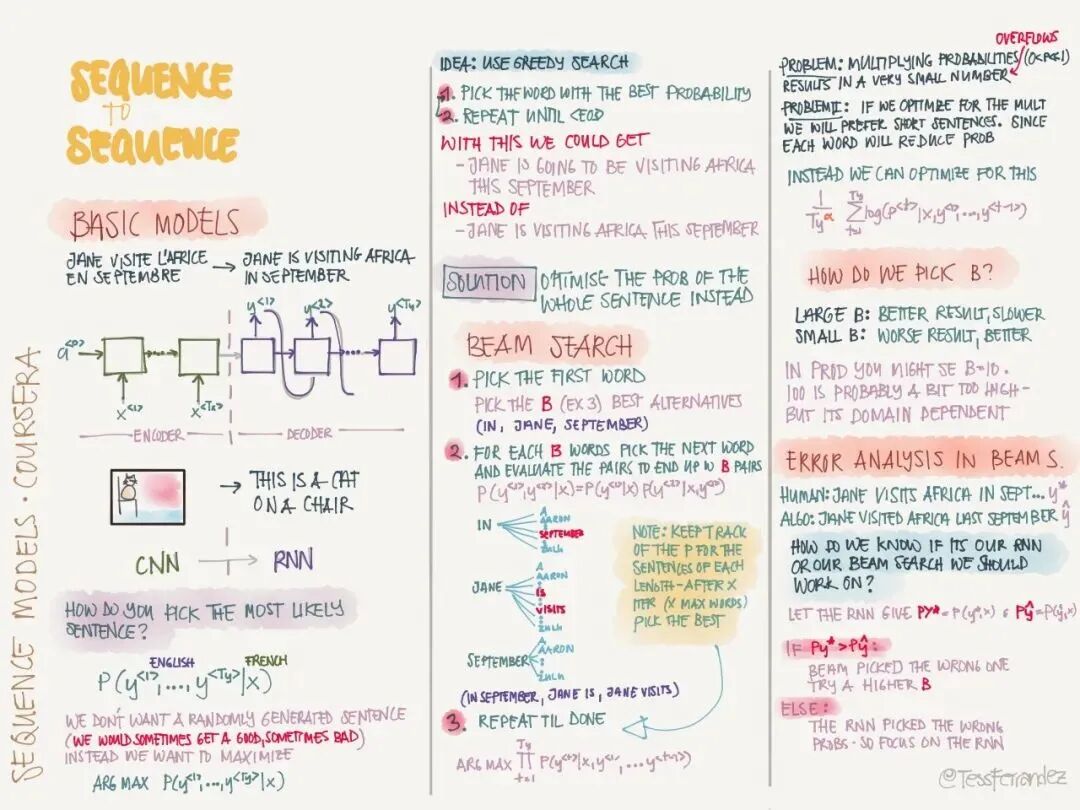 SEQUENCE
TO
SEQUENCE
SEQUENCE MODELS · COURSERA
BASIC MODELS
JANE VISITE L'AFRICE
EN SEPTEMBRE
→ JANE IS VISITING AFRICA
IN SEPTEMBER
y<1> y<2> y<Ty>
a<0>
x<1> x<Tx>
ENCODER DECODER
→ THIS IS A CAT
ON A CHAIR
CNN → RNN
HOW DO YOU PICK THE MOST LIKELY
SENTENCE?
ENGLISH FRENCH
P(y<1>,...,y<Ty>|x)
WE DON'T WANT A RANDOMLY GENERATED SENTENCE
(WE WOULD SOMETIMES GET A GOOD, SOMETIMES BAD)
INSTEAD WE WANT TO MAXIMIZE
ARG MAX P(y<1>,...,y<Ty>|x)
IDEA: USE GREEDY SEARCH
1. PICK THE WORD WITH THE BEST PROBABILITY
2. REPEAT UNTIL <EOS>
WITH THIS WE COULD GET
- JANE IS GOING TO BE VISITING AFRICA
THIS SEPTEMBER
INSTEAD OF
- JANE IS VISITING AFRICA THIS SEPTEMBER
SOLUTION OPTIMISE THE PROB OF THE
WHOLE SENTENCE INSTEAD
BEAM SEARCH
1. PICK THE FIRST WORD
PICK THE B (EX 3) BEST ALTERNATIVES
(IN, JANE, SEPTEMBER)
2. FOR EACH B WORDS PICK THE NEXT WORD
AND EVALUATE THE PAIRS TO END UP W B PAIRS
P(y<1>,y<2>|x)=P(y<1>|x) P(y<2>|x,y<1>)
IN
A
AARON
SEPTEMBER
ZULU
JANE
A
AARON
IS
VISITS
ZULU
SEPTEMBER
A
AARON
ZULU
NOTE: KEEP TRACK
OF THE P FOR THE
SENTENCES OF EACH
LENGTH - AFTER X
ITER (X MAX WORDS)
PICK THE BEST
(IN SEPTEMBER, JANE IS, JANE VISITS)
3. REPEAT TIL DONE
ARG MAX ∏ Ty t=1 P(y<t>|x,y<1>,...y<t-1>)
OVERFLOWS
PROBLEM: MULTIPLYING PROBABILITIES (0<P≤1)
RESULTS IN A VERY SMALL NUMBER
PROBLEM II: IF WE OPTIMIZE FOR THE MULT
WE WILL PREFER SHORT SENTENCES. SINCE
EACH WORD WILL REDUCE PROB
INSTEAD WE CAN OPTIMIZE FOR THIS
1/Ty^α ∑ Ty t=1 log(P<t>|x,y<1>,...,y<t-1>)
HOW DO WE PICK B?
LARGE B: BETTER RESULT, SLOWER
SMALL B: WORSE RESULT, BETTER
IN PROD YOU MIGHT SE B=10.
100 IS PROBABLY A BIT TOO HIGH -
BUT ITS DOMAIN DEPENDENT
ERROR ANALYSIS IN BEAM S.
HUMAN: JANE VISITS AFRICA IN SEPT... y*
ALGO: JANE VISITED AFRICA LAST SEPTEMBER ŷ
HOW DO WE KNOW IF ITS OUR RNN
OR OUR BEAM SEARCH WE SHOULD
WORK ON?
LET THE RNN GIVE Py*=P(y*,x) & Pŷ=P(ŷ,x)
IF Py*>Pŷ:
BEAM PICKED THE WRONG ONE
TRY A HIGHER B
ELSE:
THE RNN PICKED THE WRONG
PROBS - SO FOCUS ON THE RNN
@TessFerrandez